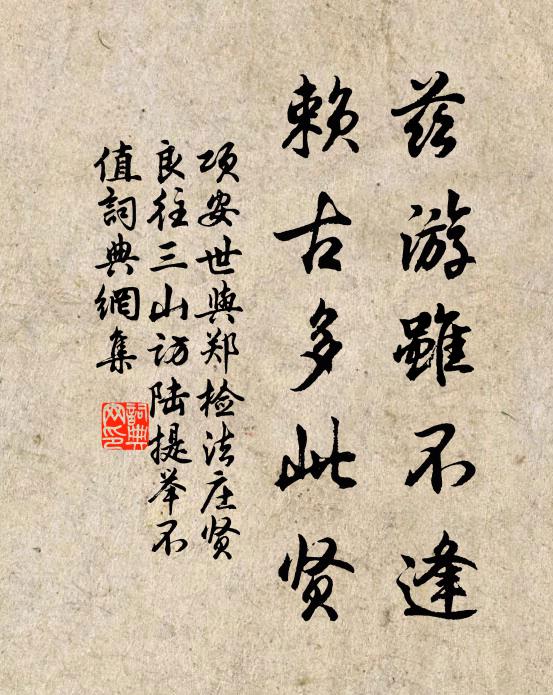 兹游雖不逢
赖古多此贤
项安世與郑检法庄贤
良往三山访陆提举不
值詞典網集
詞典
网印